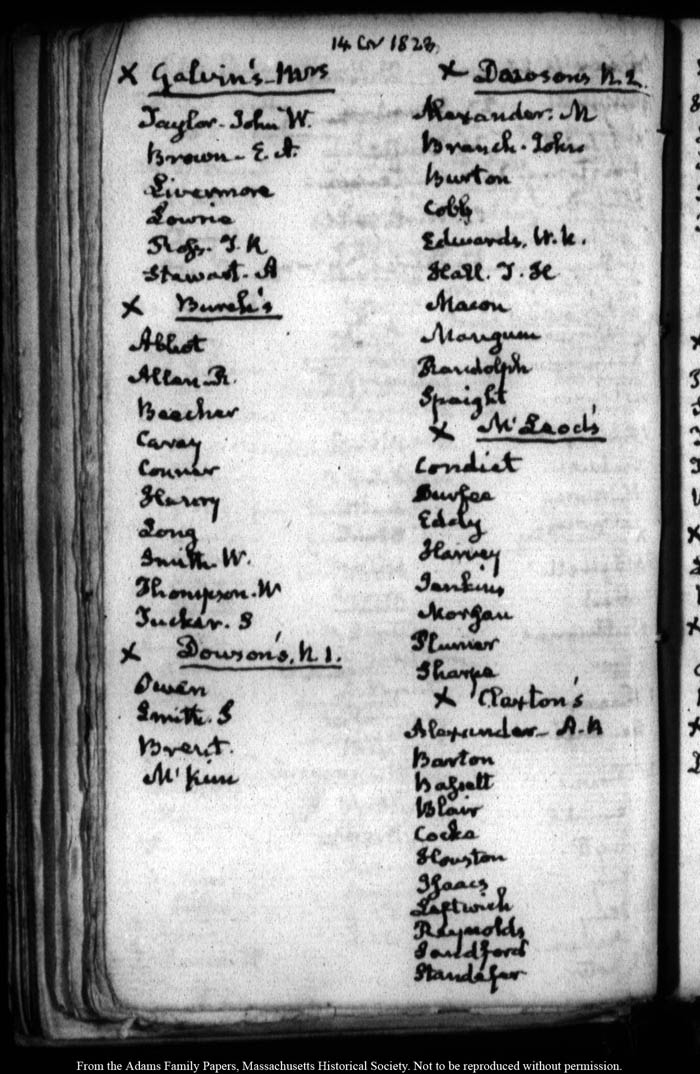 14 Cov 1823.
X Galvin's - Mrs
Taylor - John W.
Brown - E. A.
Livermore
Lowrie
Ross. T. R
Stewart. A
X Burch's
Abbot
Allen. R.
Beecher
Carey
Conner
Harvey
Long
Smith. W.
Thompson. W
Tucker. S
X Dowson's. N. 1.
Owen
Smith. S
Brent.
McKim
X Dawson's N. 2.
Alexander. M
Branch. John
Burton
Cobb
Edwards. W. k.
Hall. T. H
Macon
Mangum
Randolph
Spaight
X McLeod's
Condict
Durfee
Eddy
Harvey
Jenkins
Morgan
Plumer
Sharpe
X Claxton's
Alexander - A. R
Barton
Bassett
Blair
Cocke
Houston
Isaacs
Leftwich
Reynolds
Sandford
Standefer
From the Adams Family Papers, Massachusetts Historical Society. Not to be reproduced without permission.